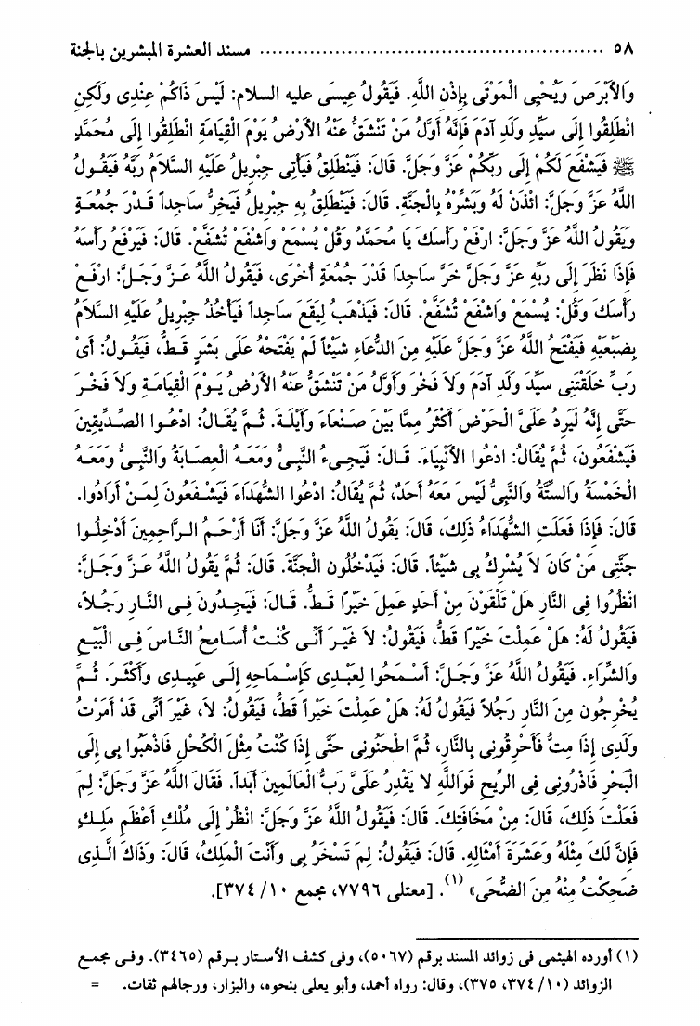 ٥٨ ........................................................ مسند العشرة المبشرين بالجنة
وَالأَبْرَصَ وَيُحْيِى الْمَوْتَى بِإِذْنِ اللَّهِ. فَيَقُولُ عِيسَى عليه السلام: لَيْسَ ذَاكُمْ عِنْدِى وَلَكِنِ
انْطَلِقُوا إِلَى سَيِّدِ وَلَدِ آدَمَ فَإِنَّهُ أَوَّلُ مَنْ تَنْشَقُّ عَنْهُ الأَرْضُ يَوْمَ الْقِيَامَةِ انْطَلِقُوا إِلَى مُحَمَّدٍ
ﷺ فَيَشْفَعَ لَكُمْ إِلَى رَبِّكُمْ عَزَّ وَجَلَّ. قَالَ: فَيَنْطَلِقُ فَيَأْتِى جِبْرِيلُ عَلَيْهِ السَّلاَمُ رَبَّهُ فَيَقُولُ
اللَّهُ عَزَّ وَجَلَّ: ائْذَنْ لَهُ وَبَشِّرْهُ بِالْجَنَّةِ. قَالَ: فَيَنْطَلِقُ بِهِ جِبْرِيلُ فَيَخِرُّ سَاجِداً قَدْرَ جُمُعَةٍ
وَيَقُولُ اللَّهُ عَزَّ وَجَلَّ: ارْفَعْ رَأْسَكَ يَا مُحَمَّدُ وَقُلْ يُسْمَعْ وَاشْفَعْ تُشَفَّعْ. قَالَ: فَيَرْفَعُ رَأْسَهُ
فَإِذَا نَظَرَ إِلَى رَبِّهِ عَزَّ وَجَلَّ خَرَّ سَاجِداً قَدْرَ جُمُعَةٍ أُخْرَى، فَيَقُولُ اللَّهُ عَزَّ وَجَلَّ: ارْفَعْ
رَأْسَكَ وَقُلْ: يُسْمَعْ وَاشْفَعْ تُشَفَّعْ. قَالَ: فَيَذْهَبُ لِيَقَعَ سَاجِداً فَيَأْخُذُ جِبْرِيلُ عَلَيْهِ السَّلاَمُ
بِضَبْعَيْهِ فَيَفْتَحُ اللَّهُ عَزَّ وَجَلَّ عَلَيْهِ مِنَ الدُّعَاءِ شَيْئاً لَمْ يَفْتَحْهُ عَلَى بَشَرٍ قَطُّ، فَيَقُولُ: أَىْ
رَبِّ خَلَقْتَنِى سَيِّدَ وَلَدِ آدَمَ وَلاَ فَخْرَ وَأَوَّلَ مَنْ تَنْشَقُّ عَنْهُ الأَرْضُ يَوْمَ الْقِيَامَةِ وَلاَ فَخْرَ
حَتَّى إِنَّهُ لَيَرِدُ عَلَىَّ الْحَوْضَ أَكْثَرُ مِمَّا بَيْنَ صَنْعَاءَ وَأَيْلَةَ. ثُمَّ يُقَالُ: ادْعُوا الصِّدِّيقِينَ
فَيَشْفَعُونَ، ثُمَّ يُقَالُ: ادْعُوا الأَنْبِيَاءَ. قَالَ: فَيَجِىءُ النَّبِىُّ وَمَعَهُ الْعِصَابَةُ وَالنَّبِىُّ وَمَعَهُ
الْخَمْسَةُ وَالسِّتَّةُ وَالنَّبِىُّ لَيْسَ مَعَهُ أَحَدٌ، ثُمَّ يُقَالُ: ادْعُوا الشُّهَدَاءَ فَيَشْفَعُونَ لِمَنْ أَرَادُوا.
قَالَ: فَإِذَا فَعَلَتِ الشُّهَدَاءُ ذَلِكَ، قَالَ: يَقُولُ اللَّهُ عَزَّ وَجَلَّ: أَنَا أَرْحَمُ الرَّاحِمِينَ أَدْخِلُوا
جَنَّتِى مَنْ كَانَ لاَ يُشْرِكُ بِى شَيْئاً. قَالَ: فَيَدْخُلُونَ الْجَنَّةَ. قَالَ: ثُمَّ يَقُولُ اللَّهُ عَزَّ وَجَلَّ:
انْظُرُوا فِى النَّارِ هَلْ تَلْقَوْنَ مِنْ أَحَدٍ عَمِلَ خَيْراً قَطُّ. قَالَ: فَيَجِدُونَ فِى النَّارِ رَجُلاً،
فَيَقُولُ لَهُ: هَلْ عَمِلْتَ خَيْراً قَطُّ، فَيَقُولُ: لاَ غَيْرَ أَنِّى كُنْتُ أُسَامِحُ النَّاسَ فِى الْبَيْعِ
وَالشِّرَاءِ. فَيَقُولُ اللَّهُ عَزَّ وَجَلَّ: أَسْمِحُوا لِعَبْدِى كَإِسْمَاحِهِ إِلَى عَبِيدِى وَأَكْثَرَ. ثُمَّ
يُخْرِجُونَ مِنَ النَّارِ رَجُلاً فَيَقُولُ لَهُ: هَلْ عَمِلْتَ خَيْراً قَطُّ، فَيَقُولُ: لاَ، غَيْرَ أَنِّى قَدْ أَمَرْتُ
وَلَدِى إِذَا مِتُّ فَأَحْرِقُونِى بِالنَّارِ، ثُمَّ اطْحَنُونِى حَتَّى إِذَا كُنْتُ مِثْلَ الْكُحْلِ فَاذْهَبُوا بِى إِلَى
الْبَحْرِ فَاذْرُونِى فِى الرِّيحِ فَوَاللَّهِ لاَ يَقْدِرُ عَلَىَّ رَبُّ الْعَالَمِينَ أَبَداً. فَقَالَ اللَّهُ عَزَّ وَجَلَّ: لِمَ
فَعَلْتَ ذَلِكَ، قَالَ: مِنْ مَخَافَتِكَ. قَالَ: فَيَقُولُ اللَّهُ عَزَّ وَجَلَّ: انْظُرْ إِلَى مُلْكِ أَعْظَمِ مَلِكٍ
فَإِنَّ لَكَ مِثْلَهُ وَعَشَرَةَ أَمْثَالِهِ. قَالَ: فَيَقُولُ: لِمَ تَسْخَرُ بِى وَأَنْتَ الْمَلِكُ، قَالَ: وَذَاكَ الَّذِى
ضَحِكْتُ مِنْهُ مِنَ الضُّحَى» (١). [معتلى ٧٧٩٦، مجمع ١٠/ ٣٧٤].
(١) أورده الهيثمى فى زوائد المسند برقم (٥٠٦٧)، وفى كشف الأستار برقم (٣٤٦٥). وفى مجمع
الزوائد (١٠/ ٣٧٤، ٣٧٥)، وقال: رواه أحمد، وأبو يعلى بنحوه، والبزار، ورجالهم ثقات. =